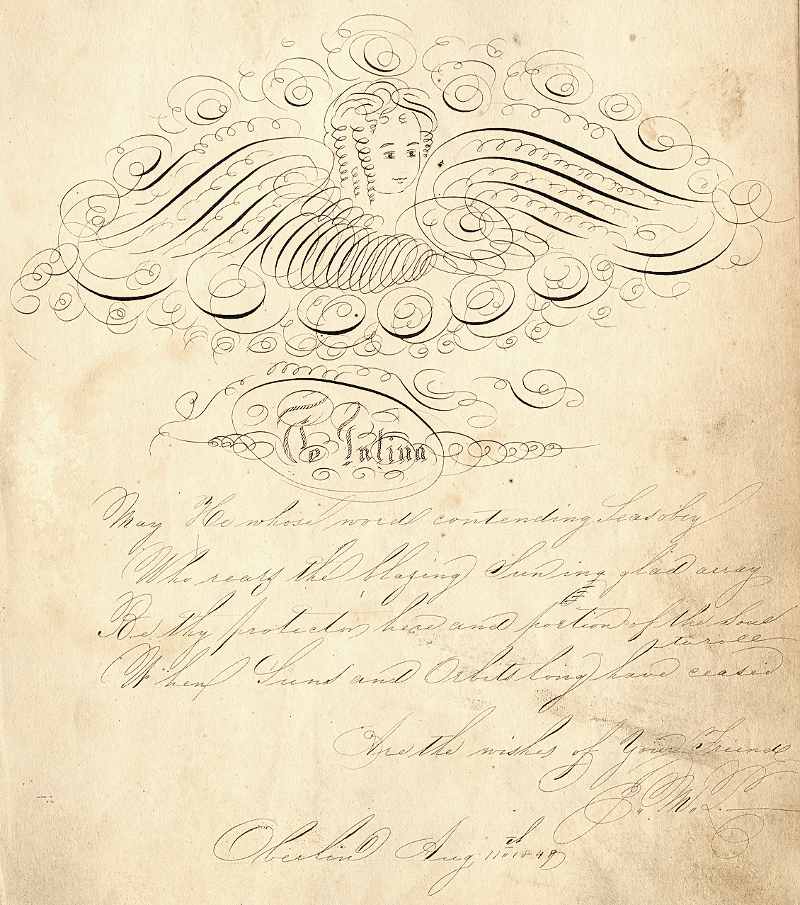 To Latina
May He whose word contending Seas obey
Who rears the blazing Sun in glad array
Be thy protector here and portion of the soul
When Suns and Orbits long have ceased to roll
Are the wishes of Your Friend
Oberlin Aug. 11th 1849